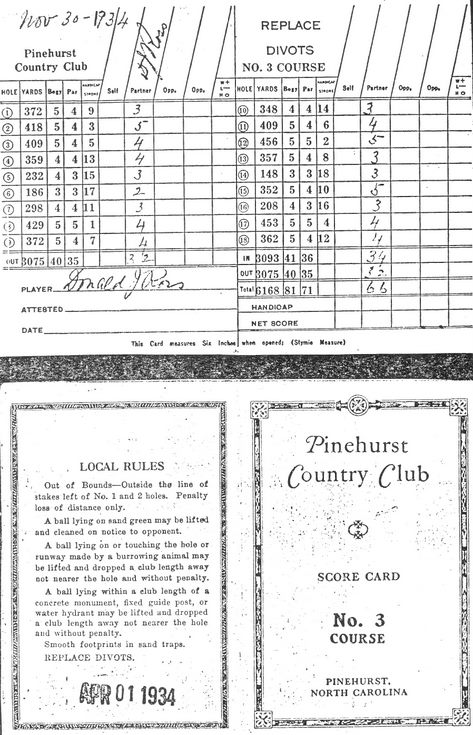 Nov 30-1934
Pinehurst
Country Club
DJ Ross
HOLE YARDS Bogy Par HANDICAP STROKE Self Partner Opp. Opp. W+ L— H O
1 372 5 4 9 3
2 418 5 4 3 5
3 409 5 4 5 4
4 359 4 4 13 4
5 232 4 3 15 3
6 186 3 3 17 2
7 298 4 4 11 3
8 429 5 5 1 4
9 372 5 4 7 4
OUT 3075 40 35 32
PLAYER Donald J Ross
ATTESTED
DATE
REPLACE
DIVOTS
NO. 3 COURSE
HOLE YARDS Bogy Par HANDICAP STROKE Self Partner Opp. Opp. W+ L— H O
10 348 4 4 14 3
11 409 5 4 6 4
12 456 5 5 2 5
13 357 5 4 8 3
14 148 3 3 18 3
15 352 5 4 10 5
16 208 4 3 16 3
17 453 5 5 4 4
18 362 5 4 12 4
IN 3093 41 36 34
OUT 3075 40 35 32
Total 6168 81 71 66
HANDICAP
NET SCORE
This Card measures Six Inches when opened; (Stymie Measure)
LOCAL RULES
Out of Bounds—Outside the line of
stakes left of No. 1 and 2 holes. Penalty
loss of distance only.
A ball lying on sand green may be lifted
and cleaned on notice to opponent.
A ball lying on or touching the hole or
runway made by a burrowing animal may
be lifted and dropped a club length away
not nearer the hole and without penalty.
A ball lying within a club length of a
concrete monument, fixed guide post, or
water hydrant may be lifted and dropped
a club length away not nearer the hole
and without penalty.
Smooth footprints in sand traps.
REPLACE DIVOTS.
APR 01 1934
Pinehurst
Country Club
SCORE CARD
No. 3
COURSE
PINEHURST,
NORTH CAROLINA